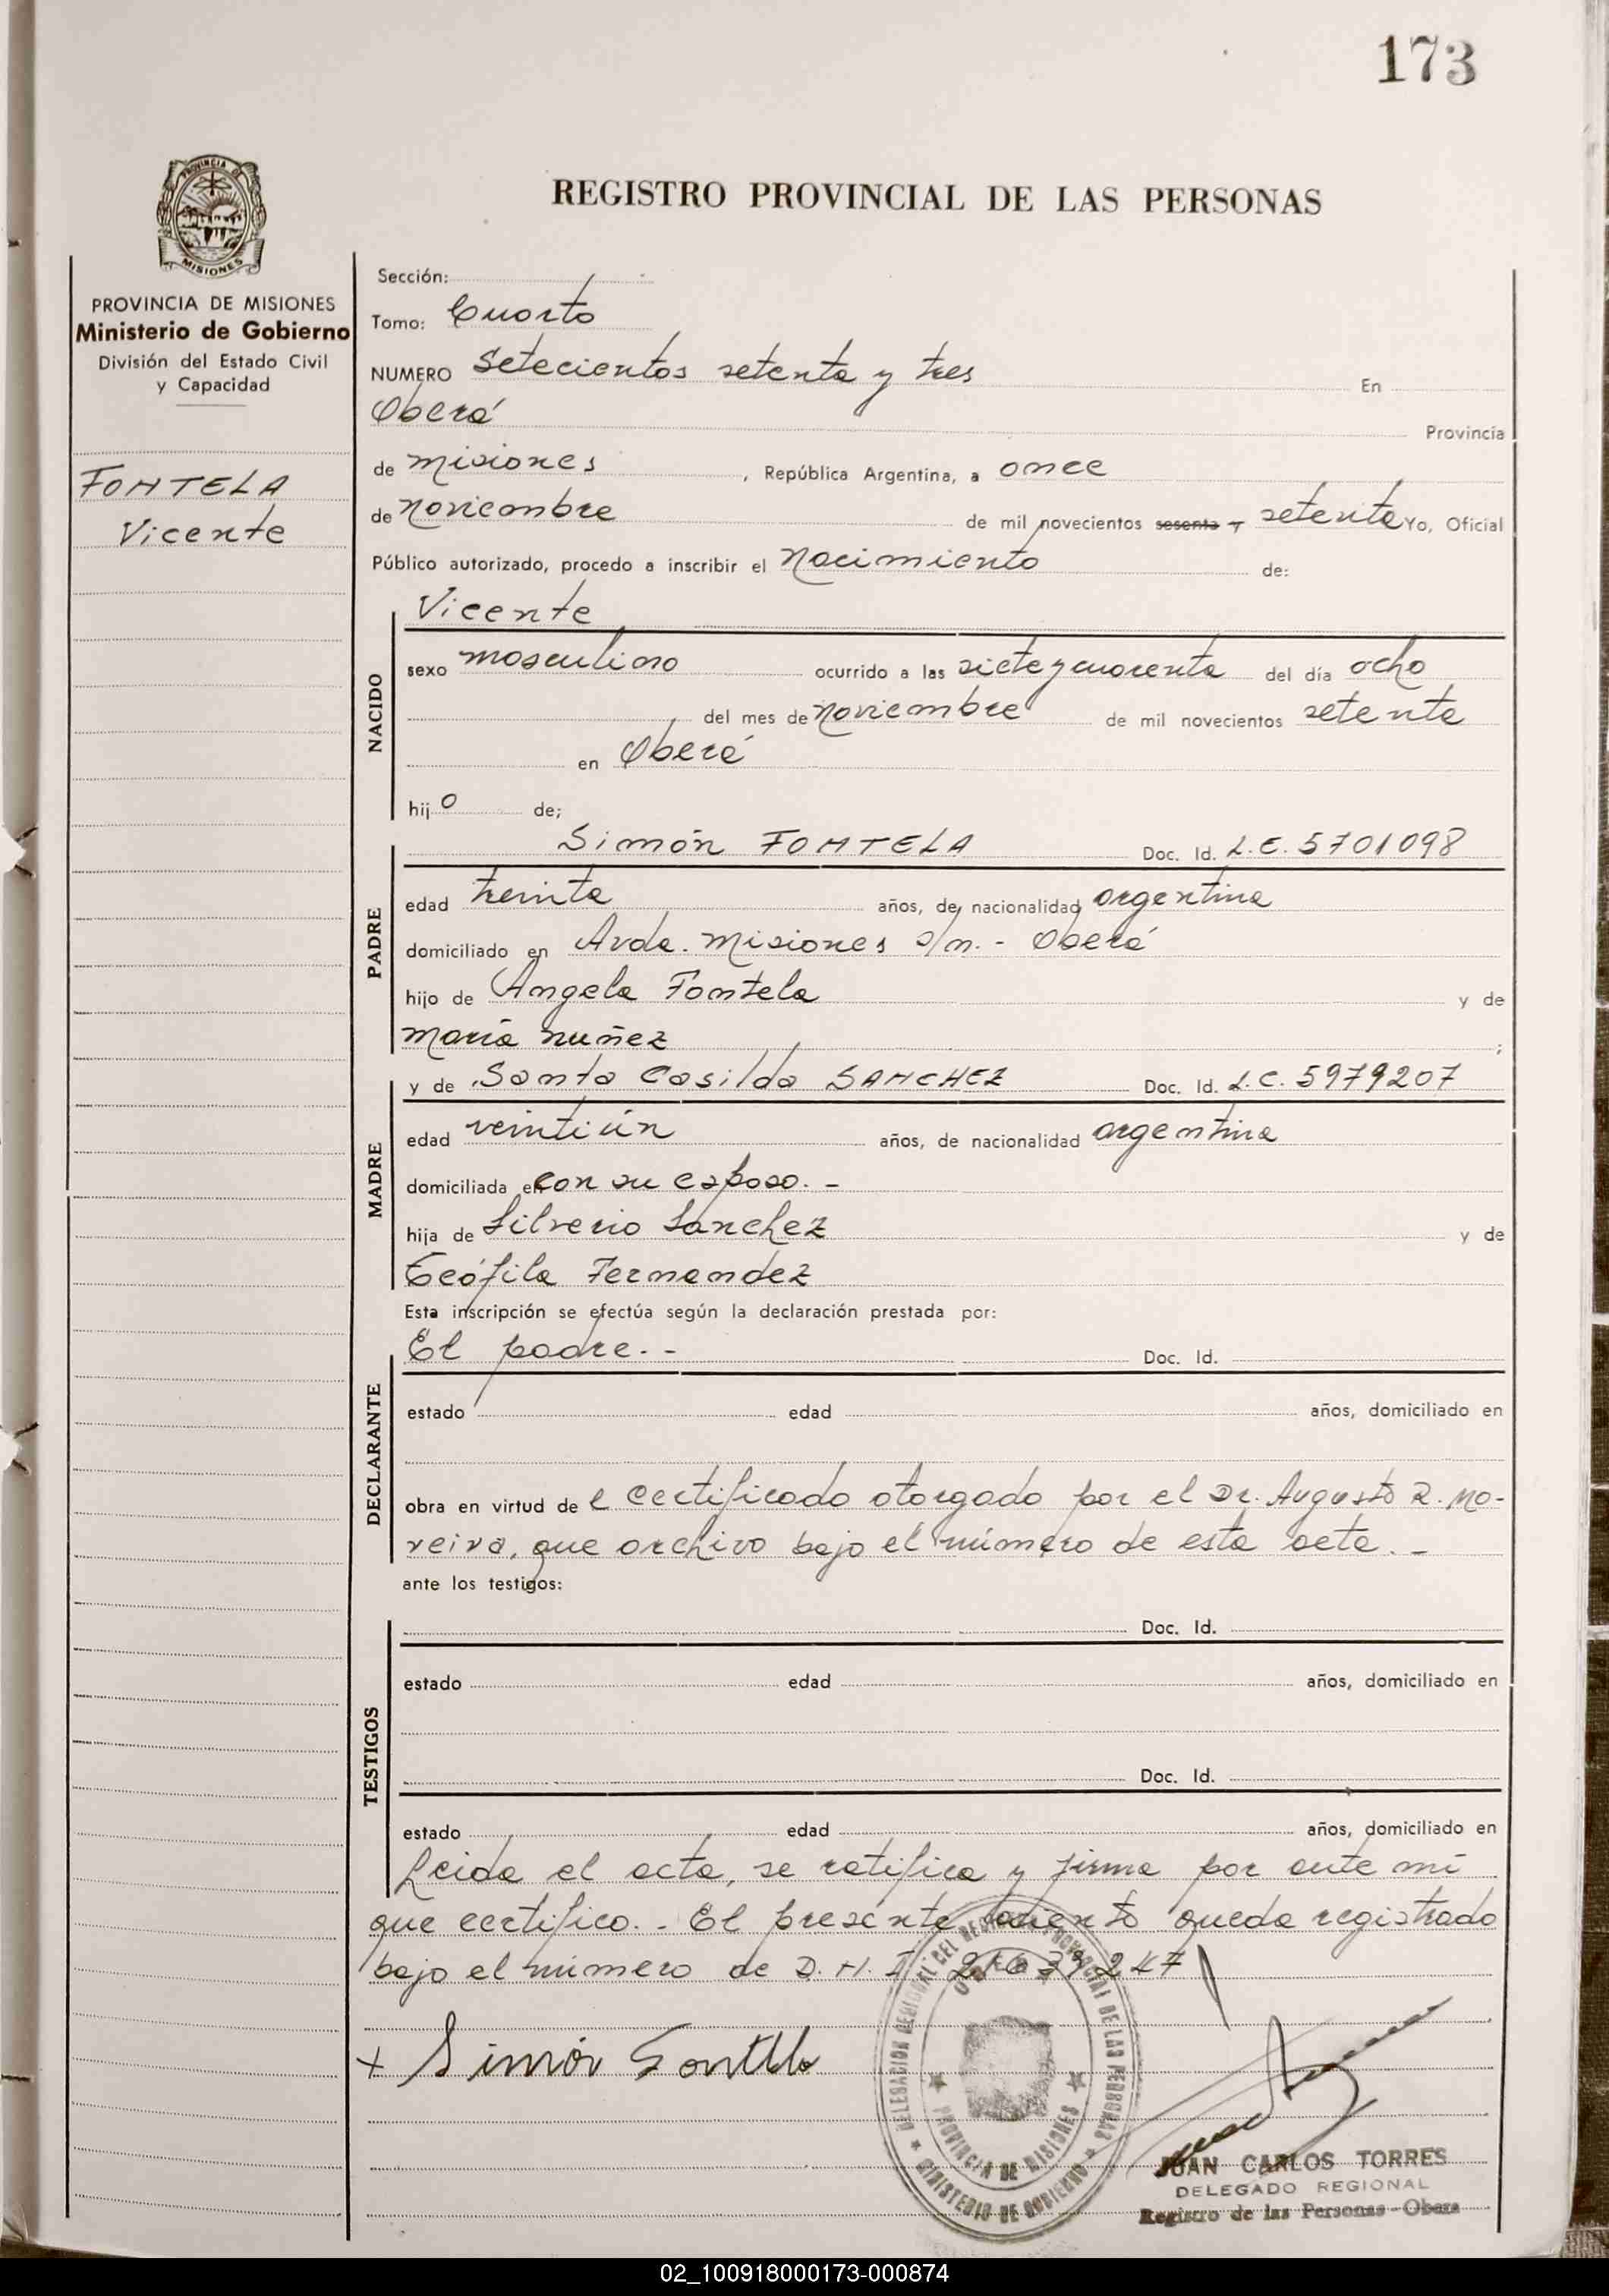 173
PROVINCIA DE
MISIONES
REGISTRO PROVINCIAL DE LAS PERSONAS
PROVINCIA DE MISIONES
Ministerio de Gobierno
División del Estado Civil
y Capacidad
FONTELA
Vicente
Sección:
Tomo: Cuarto
NUMERO Setecientos setenta y tres En
Oberá Provincia
de Misiones, República Argentina, a once
de Noviembre de mil novecientos sesenta y setenta Yo, Oficial
Público autorizado, procedo a inscribir el Nacimiento de:
NACIDO
Vicente
sexo masculino ocurrido a las siete y cuarenta del día ocho
del mes de Noviembre de mil novecientos setenta
en Oberá
hijo de;
PADRE
Simón FONTELA Doc. Id. L.E. 5701098
edad treinta años, de nacionalidad argentina
domiciliado en Avda. Misiones s/n. - Oberá
hijo de Angela Fontela y de
María Nuñez ;
MADRE
y de Santa Casilda SANCHEZ Doc. Id. L.C. 5979207
edad veintiún años, de nacionalidad argentina
domiciliada en con su esposo. -
hija de Silverio Sanchez y de
Teófila Fernandez
Esta inscripción se efectúa según la declaración prestada por:
DECLARANTE
El padre. - Doc. Id.
estado edad años, domiciliado en
obra en virtud de l certificado otorgado por el Dr. Augusto R. Mo-
reira, que archivo bajo el número de esta acta. -
ante los testigos:
TESTIGOS
Doc. Id.
estado edad años, domiciliado en
Doc. Id.
estado edad años, domiciliado en
Leida el acta, se ratifica y firma por ante mí
que certifico. - El presente asiento queda registrado
bajo el número de D.N.I.
+ Simón Fontela
DELEGACION REGIONAL DEL REGISTRO PROVINCIAL DE LAS PERSONAS
PROVINCIA DE MISIONES
MINISTERIO DE GOBIERNO
JUAN CARLOS TORRES
DELEGADO REGIONAL
Registro de las Personas - Obera
02_100918000173-000874